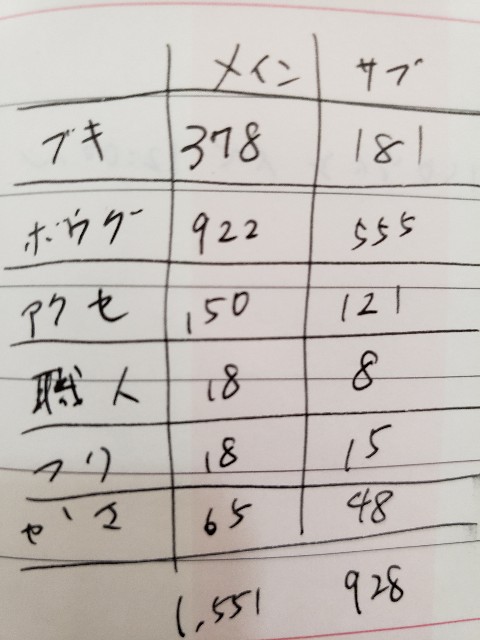 メイン サブ
ブキ 378 181
ボウグー 922 555
アクセ 150 121
職人 18 8
ツリ 18 15
65 48
1,551 928